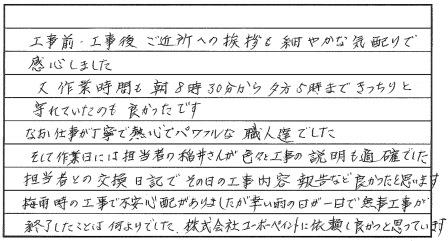 工事前・工事後 ご近所への挨拶も 細やかな気配りで
感心しました
又 作業時間も 朝8時30分から 夕方5時まできっちりと
守れていたのも 良かったです
なお仕事が丁寧で熱心でパワフルな 職人達でした
そして作業日には担当者の稲井さんが色々と工事の説明も適確でした
担当者との交換日記でその日の工事内容 報告など良かったと思います
梅雨時の工事で不安心配がありましたが幸い雨の日が一日で無事工事が
終了したことは何よりでした、株式会社ユーホーペイントに依頼し良かったと思っています